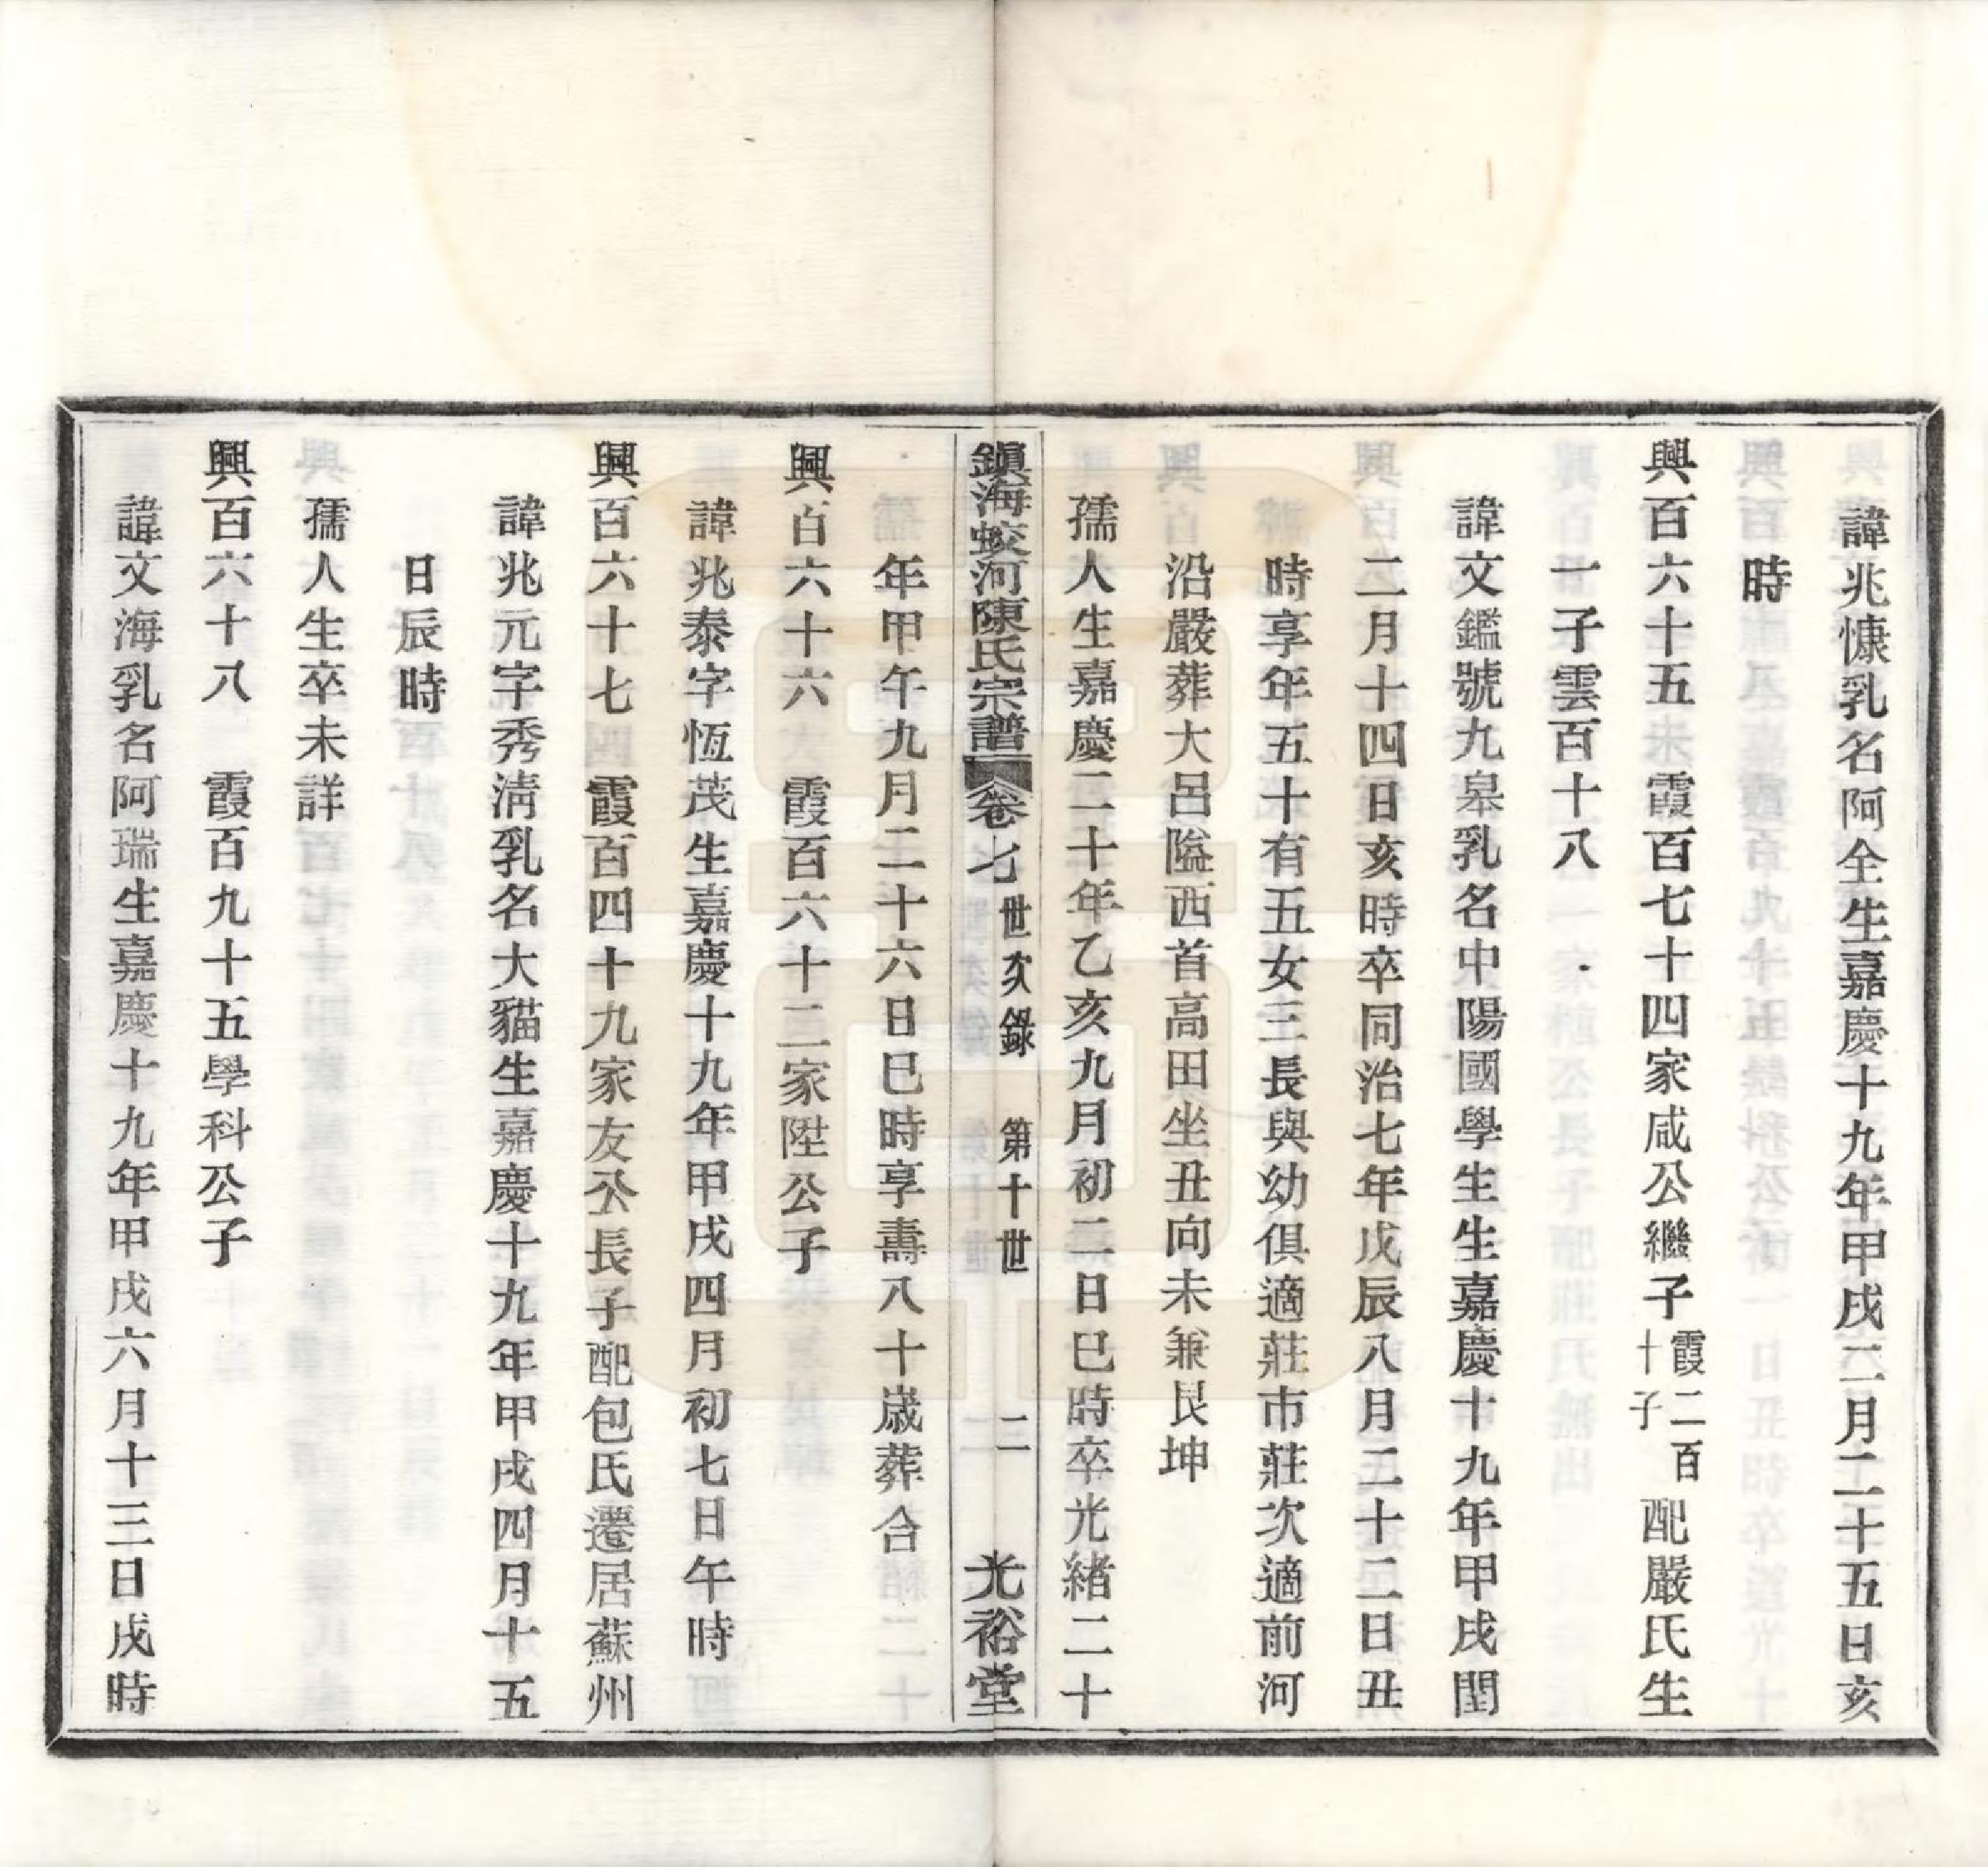 諱兆慷乳名阿全生嘉慶十九年甲戌二月二十五日亥
時
興百六十五　霞百七十四家咸公繼子霞二百十子配嚴氏生
一子雲百十八
諱文鑑號九皋乳名中陽國學生生嘉慶十九年甲戌閏
二月十四日亥時卒同治七年戊辰八月二十二日丑
時享年五十有五女三長與幼俱適莊市莊次適前河
沿嚴葬大呂隘西首高田坐丑向未兼艮坤
孺人生嘉慶二十年乙亥九月初二日巳時卒光緒二十
鎮海蛟河陳氏宗譜　卷七　世次錄　第十世　二　光裕堂
年甲午九月二十六日巳時享壽八十歲葬合
興百六十六　霞百六十二家陞公子
諱兆泰字恆茂生嘉慶十九年甲戌四月初七日午時
興百六十七　霞百四十九家友公長子配包氏遷居蘇州
諱兆元字秀淸乳名大貓生嘉慶十九年甲戌四月十五
日辰時
孺人生卒未詳
興百六十八　霞百九十五學科公子
諱文海乳名阿瑞生嘉慶十九年甲戌六月十三日戌時